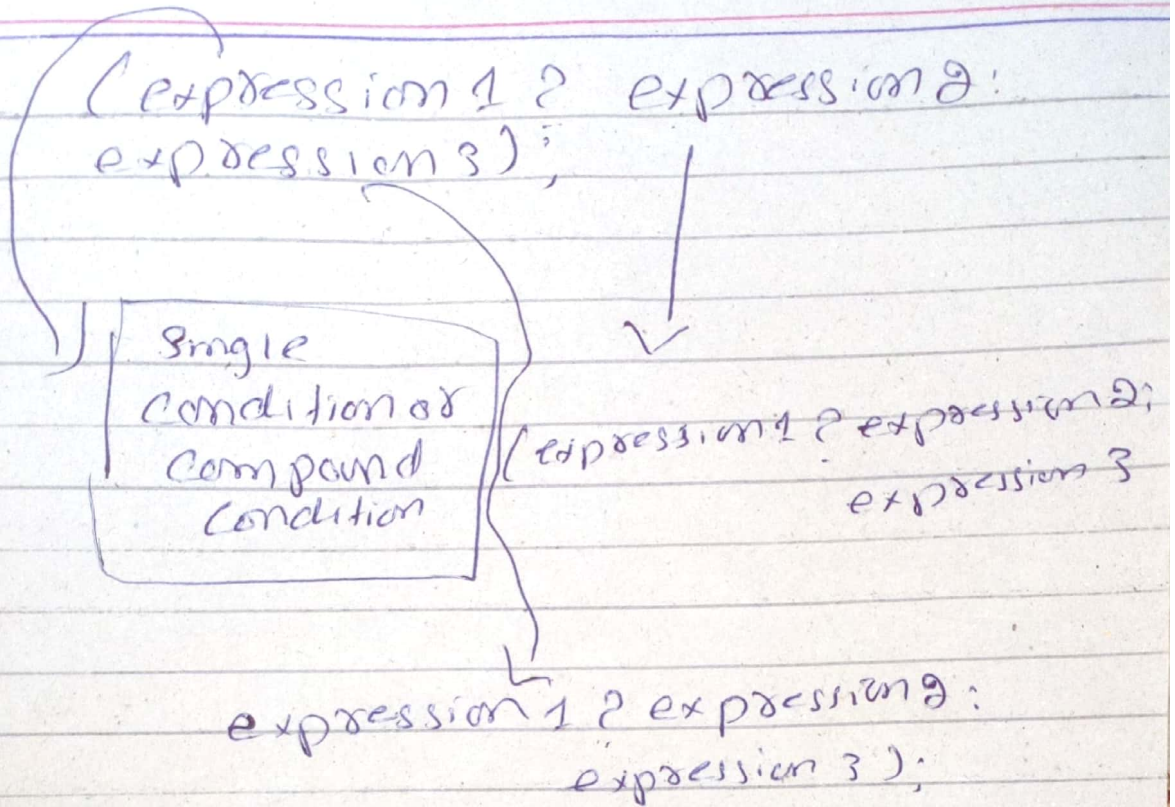 (expression 1 ? expression 2:
expression 3);
Single
condition or
compound
condition
(expression 1 ? expression 2:
expression 3
expression 1 ? expression 2:
expression 3);